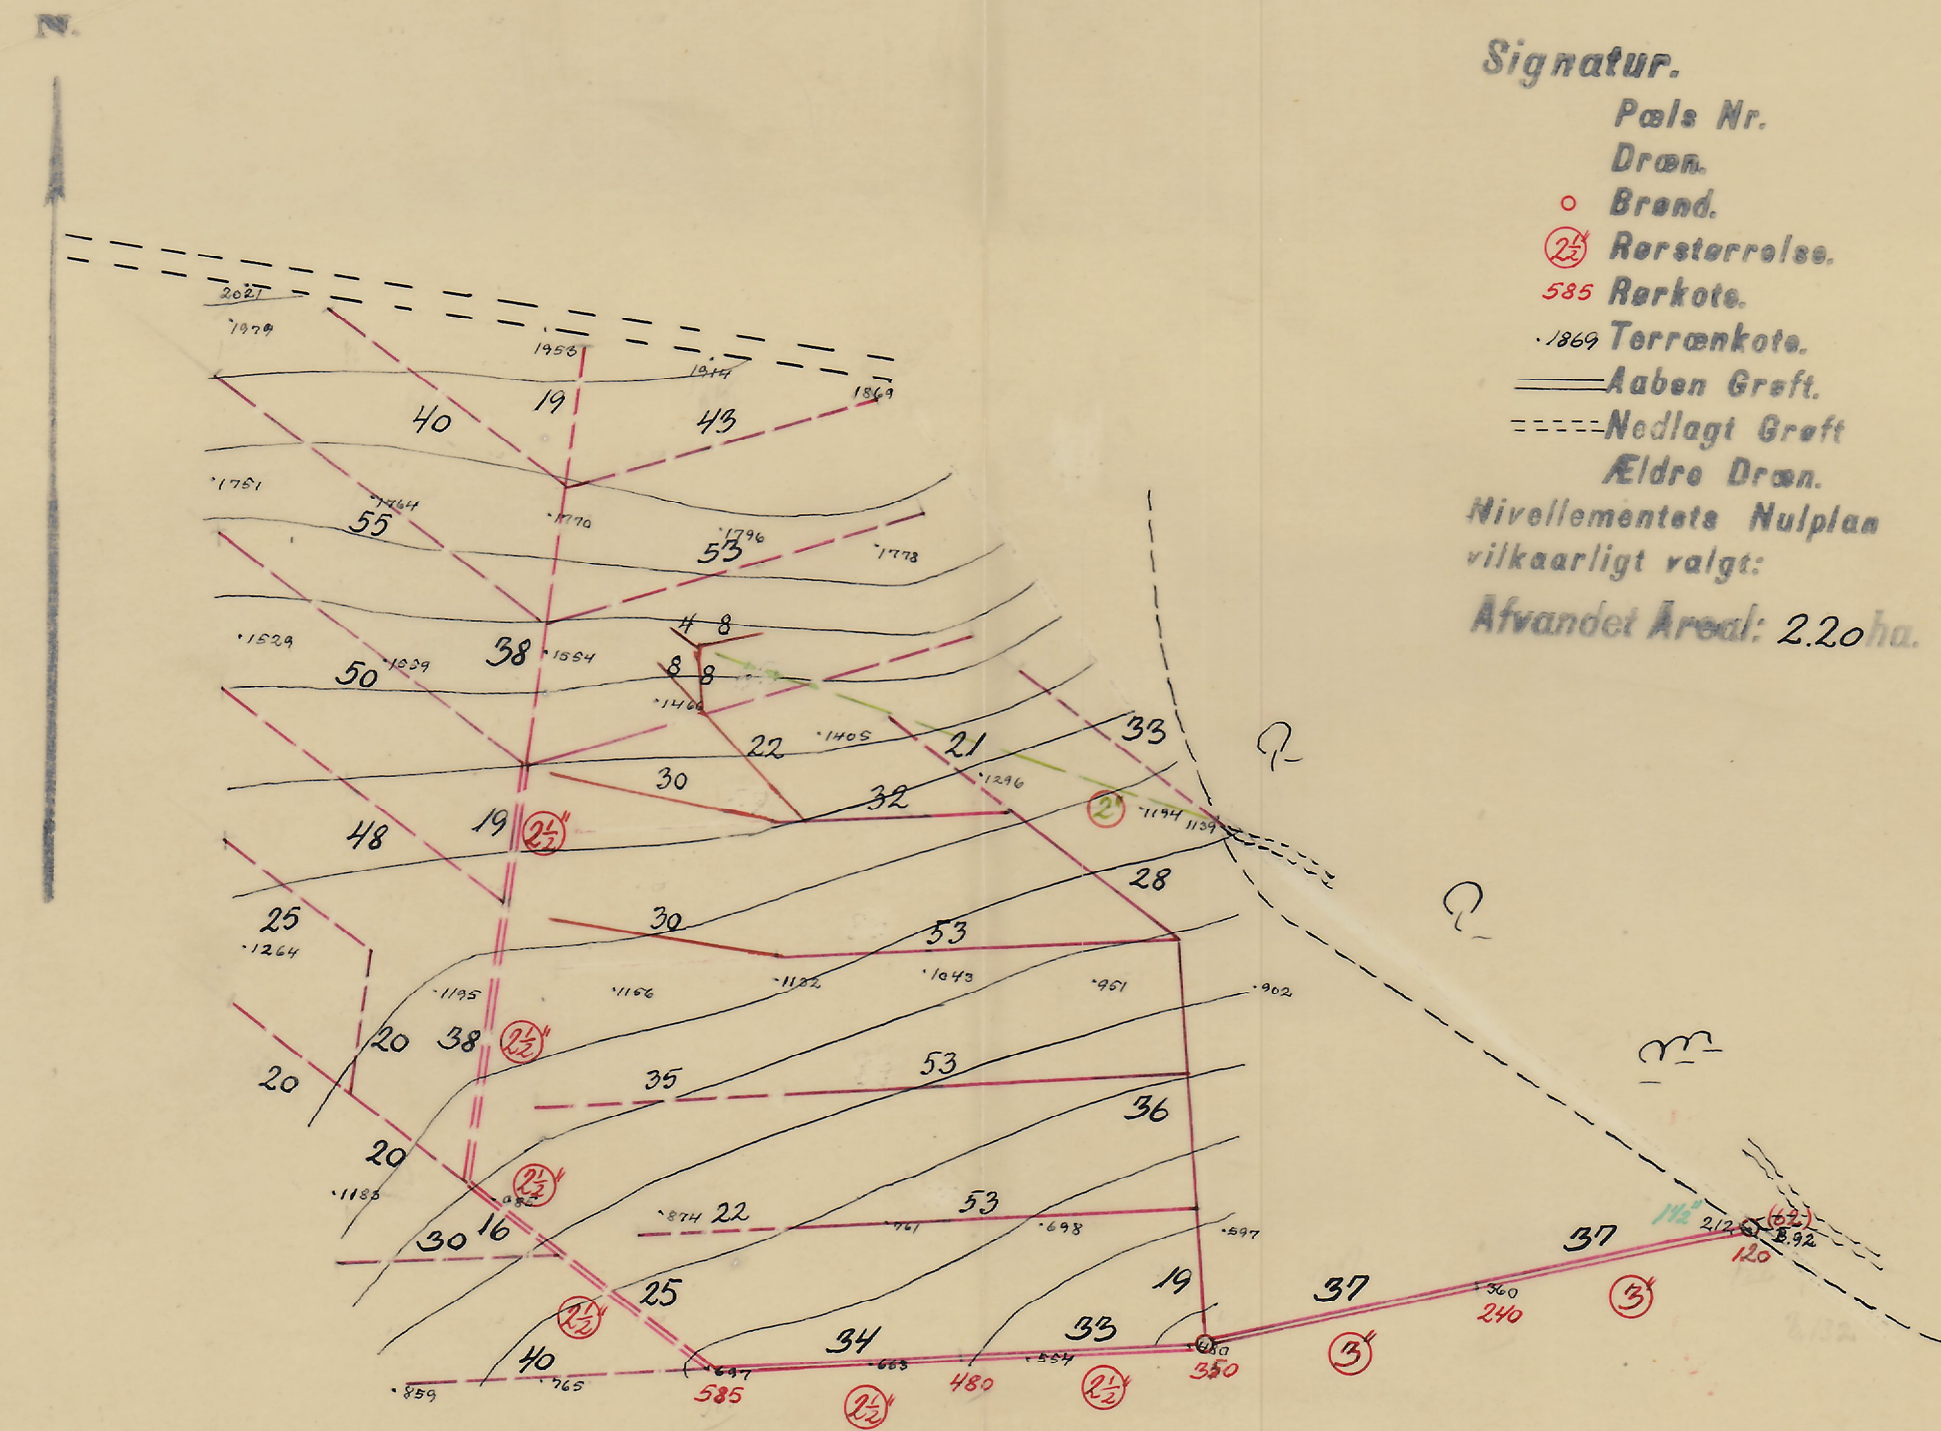 N.
Signatur.
Pæls Nr.
Dræn.
Brønd.
2½" Rørstørrelse.
585 Rørkote.
.1869 Terrænkote.
Aaben Grøft.
Nedlagt Grøft
Ældre Dræn.
Nivellementets Nulplan
vilkaarligt valgt:
Afvandet Areal: 2.20 ha.
2021
1979
1953
1914
1869
40
19
43
1751
1764
55
1770
1796
53
1778
4 8
1529
50
1539
38
1554
8 8
1466
22
1405
21
33
30
1296
32
48
19
2½"
2"
1194
1139
28
25
1264
30
53
1195
1156
1132
1043
951
902
20
38
2½"
20
35
53
36
20
1183
2½"
30
16
874
22
761
53
698
597
25
2½"
19
37
37
1½"
212
B.92
120
3"
360
240
3"
40
859
765
697
585
34
663
2½"
480
33
554
2½"
350